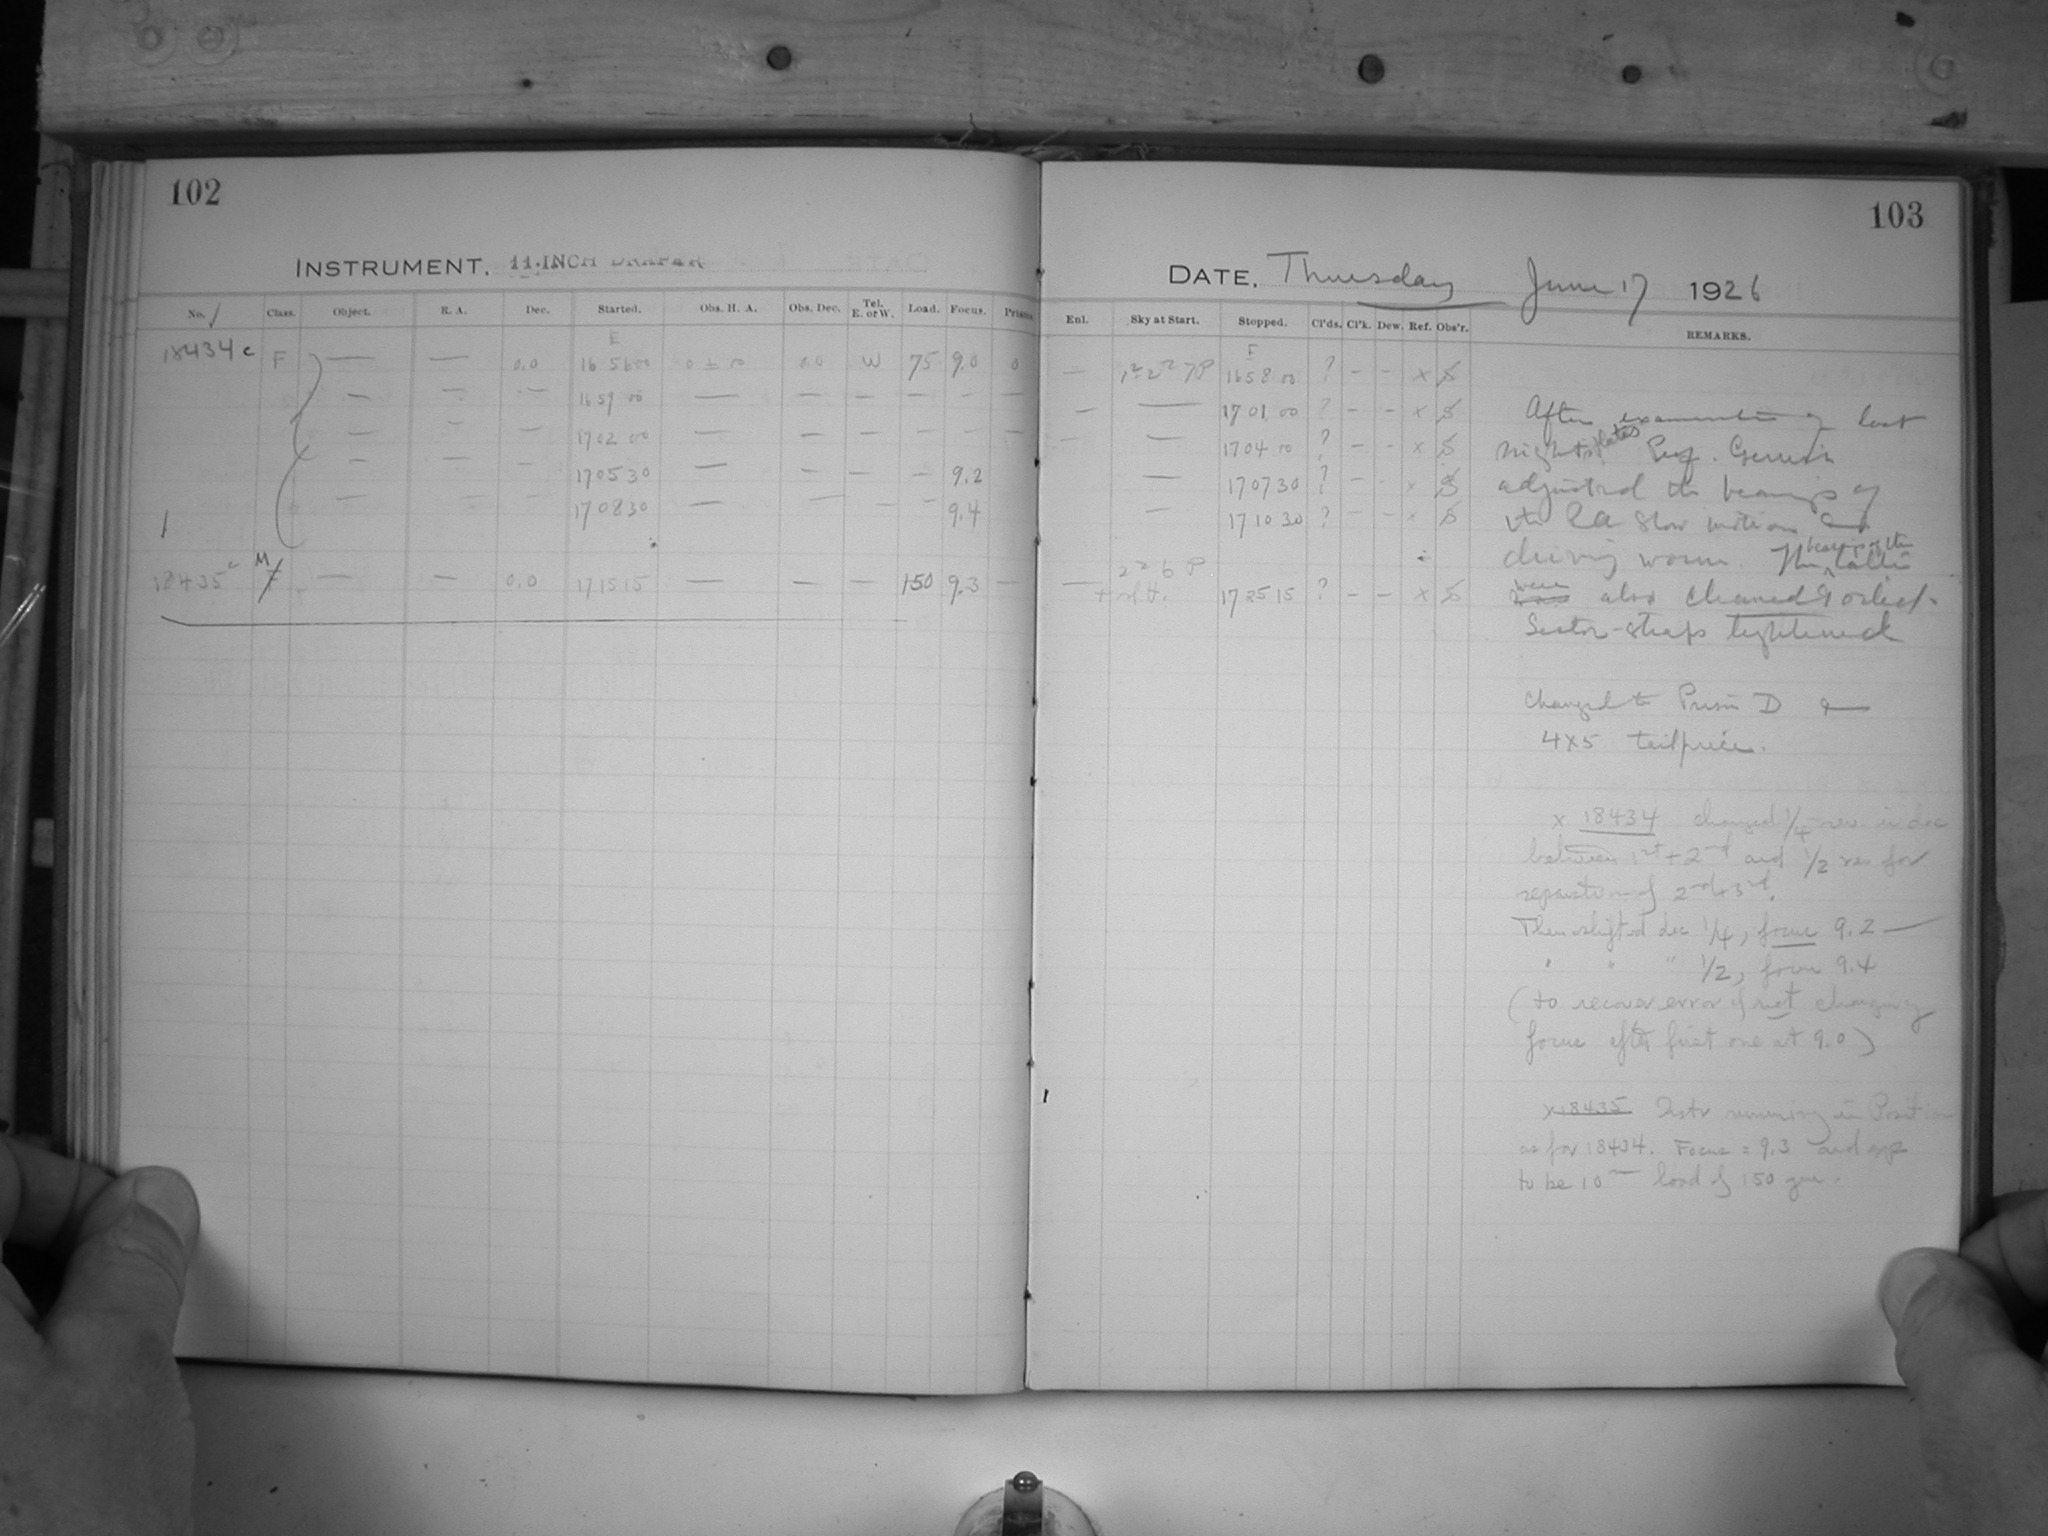 102
INSTRUMENT. 11-INCH DRAPER
No. Class. Object. R. A. Dec. Started. Obs. H. A. Obs. Dec. Tel. E. or W. Load. Focus. Prism.
E
18434 c F — — 0.0 16 56 00 0 ± 10 0.0 W 75 9.0 0
— — — 16 59 00 — — — — — —
— — — 17 02 00 — — — — — —
— — — 17 05 30 — — — — 9.2
— — — 17 08 30 — — — — 9.4
18435 c M — — 0.0 17 15 15 — — — 150 9.3 —
103
DATE. Thursday June 17 1926
Enl. Sky at Start. Stopped. Cl'ds. Cl'k. Dew. Ref. Obs'r. REMARKS.
F
— 16 58 00 ? — — x S
— — 17 01 00 ? — — x S
— — 17 04 00 ? — — x S
— 17 07 30 ? — — x S
— 17 10 30 ? — — x S
— 17 25 15 ? — — x S
After examination of last
night's plates Prof. Gerrish
adjusted the bearings of
the RA slow motion and
driving worm. The bearings of the latter
were also cleaned & oiled.
Sector-straps tightened
Changed to Prism D &
4x5 tailpiece.
x 18434 changed 1/4 rev. in dec
between 1st + 2nd and 1/2 rev for
separation of 2nd + 3rd.
Then shifted dec 1/4, focus 9.2 —
" " " 1/2, focus 9.4
(to recover error of not changing
focus after first one at 9.0)
x 18435 Instr running in Position
as for 18434. Focus = 9.3 and exp
to be 10m load of 150 gm.